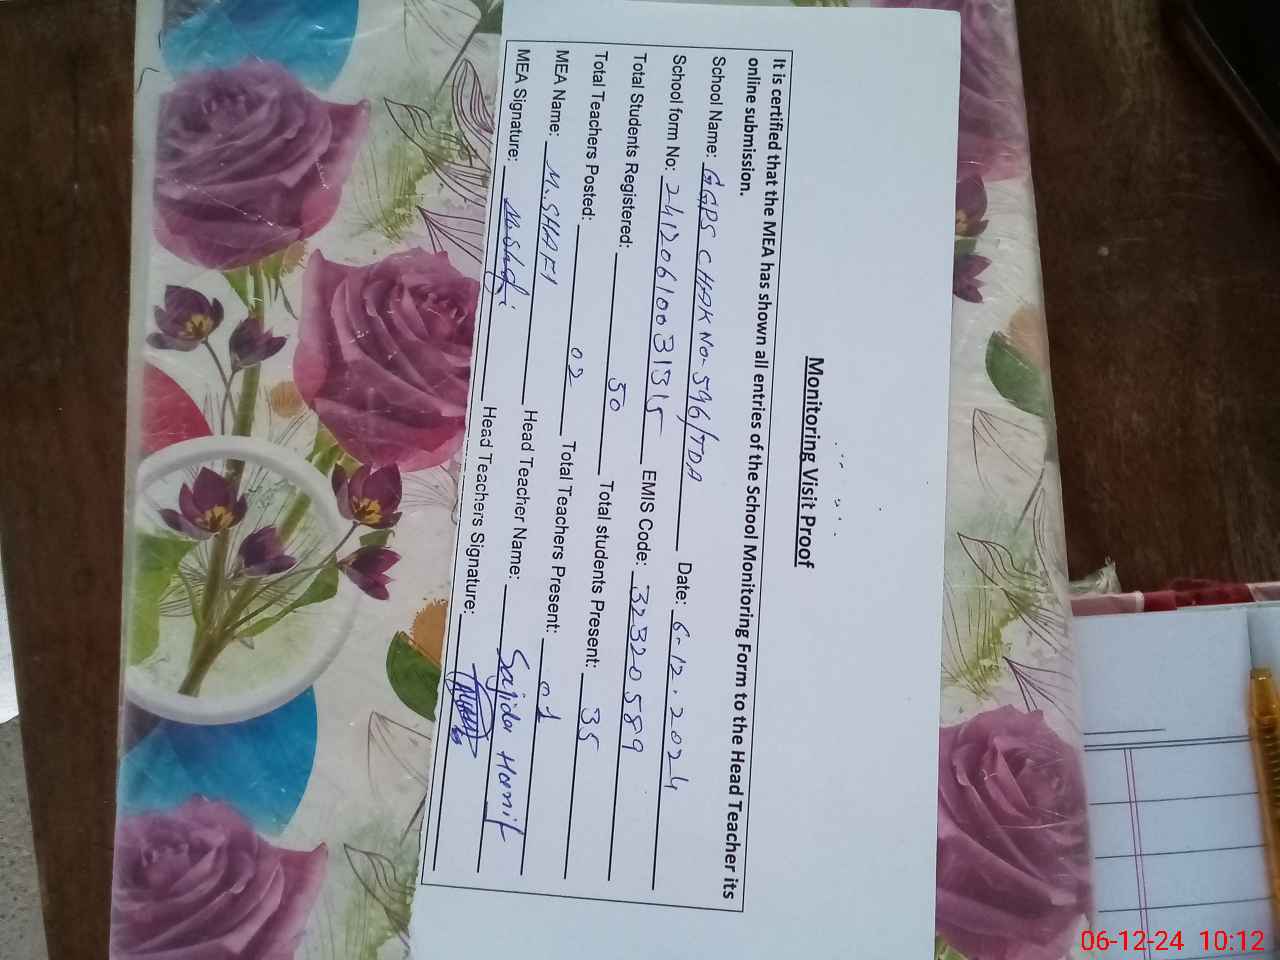 Monitoring Visit Proof
It is certified that the MEA has shown all entries of the School Monitoring Form to the Head Teacher its
online submission.
School Name: GGPS CHAK No-596/TDA Date: 6-12.2024
School form No: 2412061003135 EMIS Code: 32320589
Total Students Registered: 50 Total students Present: 35
Total Teachers Posted: 02 Total Teachers Present: 01
MEA Name: M.SHAFI Head Teacher Name: Sajida Hanif
MEA Signature: M.Shafi Head Teachers Signature:
06-12-24 10:12